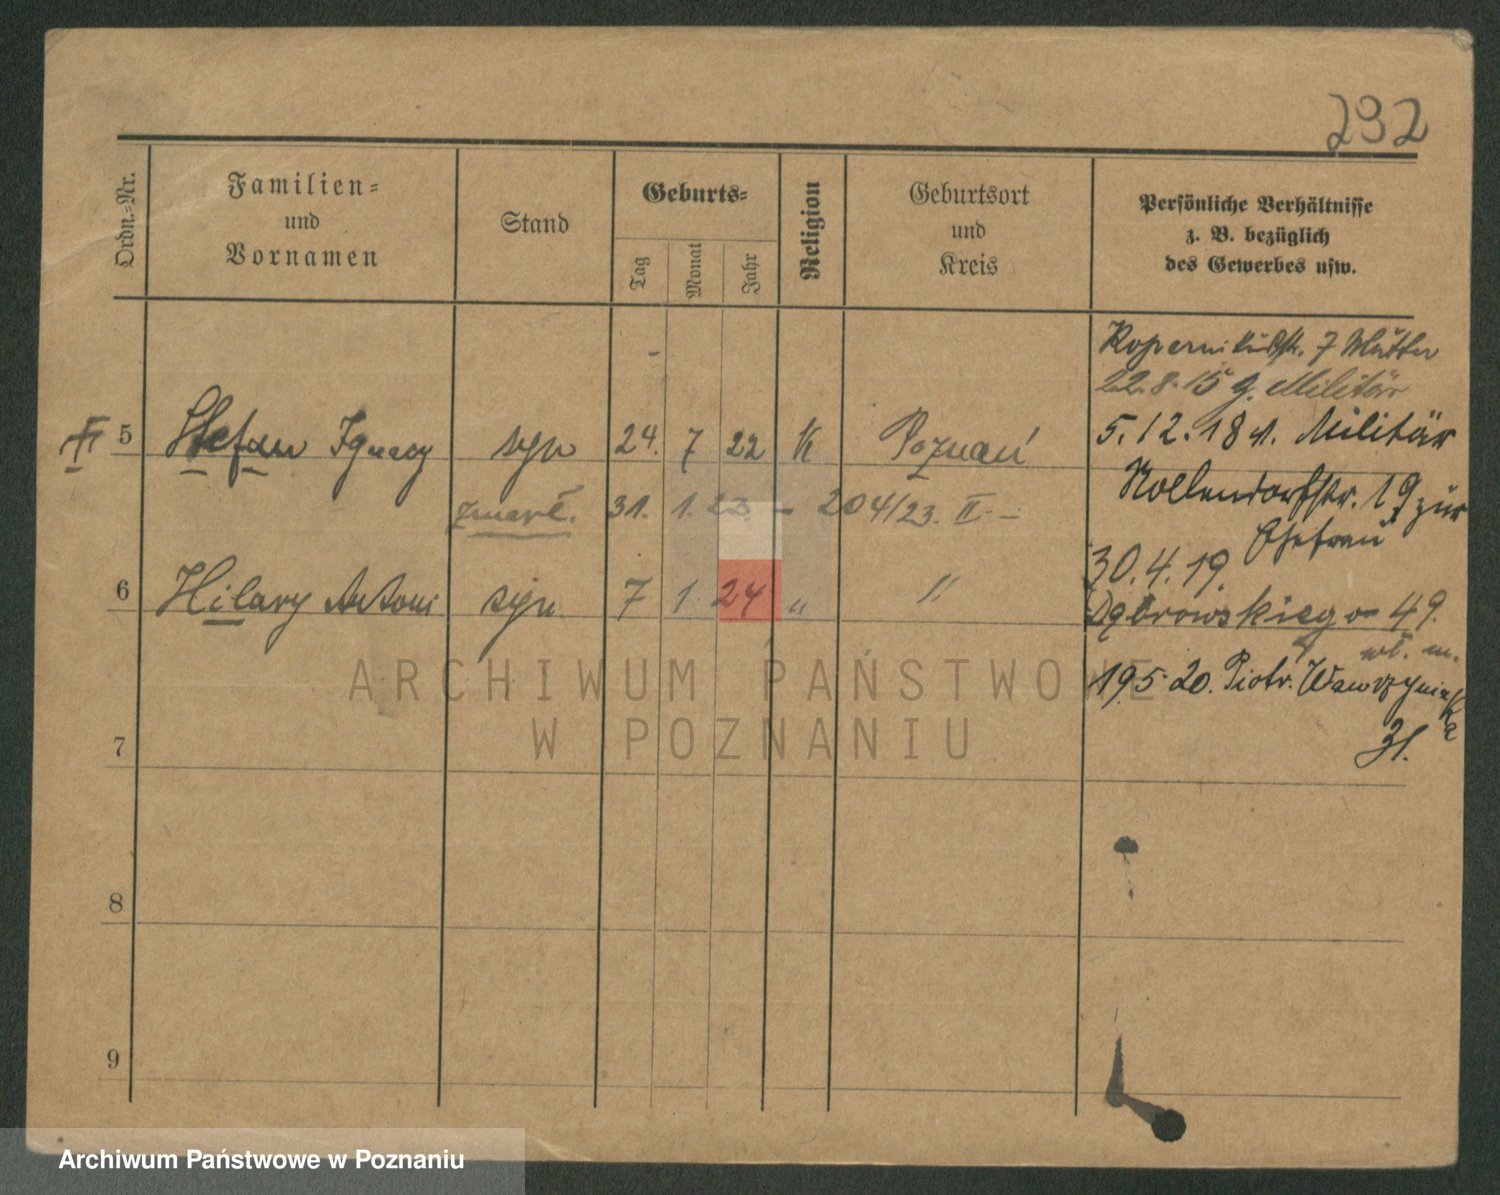 292
Ordn.-Nr.
Familien-
und
Vornamen
Stand
Geburts-
Tag
Monat
Jahr
Religion
Geburtsort
und
Kreis
Persönliche Verhältnisse
z. B. bezüglich
des Gewerbes usw.
Kopernikusstr. 7 Mutter
22.8.15 z. Militär
5.12.18 v. Militär
Nollendorfstr. 19 zur
Ehefrau
30.4.19.
Dąbrowskiego 49.
wł. m.
19 5 20. Piotr. Wawrzyniaka
31.
5 Stefan Ignacy syn 24. 7 22 K Poznań
zmarł. 31. 1. 23. - 204/23. II. -
6 Hilary Antoni syn 7 1 24 " "
7
8
9
ARCHIWUM PAŃSTWOWE
W POZNANIU
Archiwum Państwowe w Poznaniu